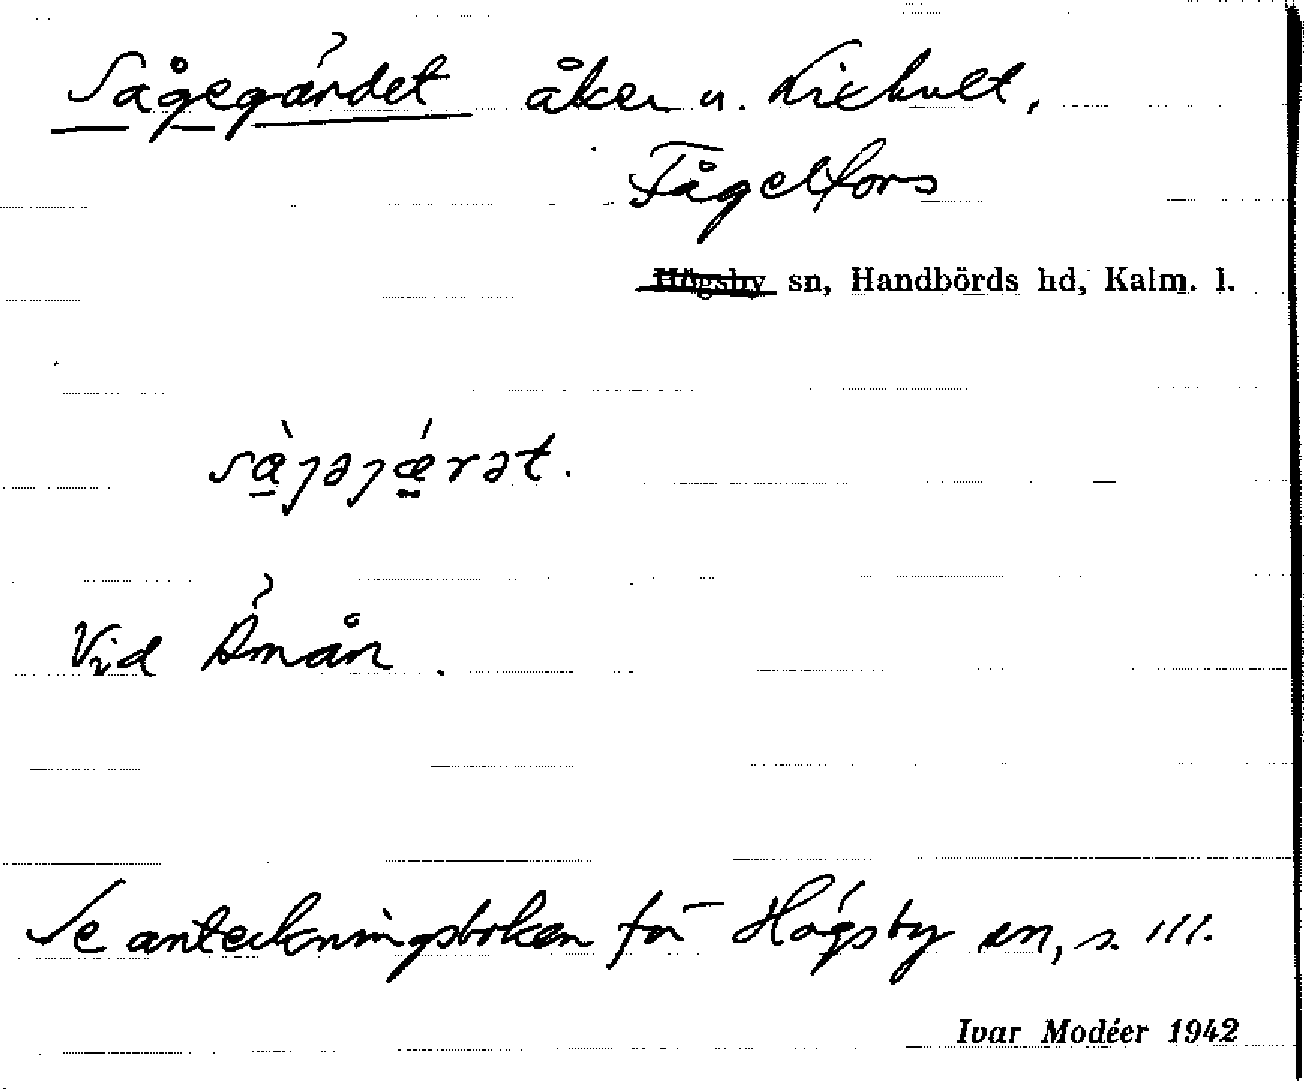 Sågegärdet åker u. Lixhult,
Fågelfors
Högsby sn, Handbörds hd, Kalm. l.
Vid Åmån.
Se anteckningsboken för Högsby sn, s. 111.
Ivar Modéer 1942